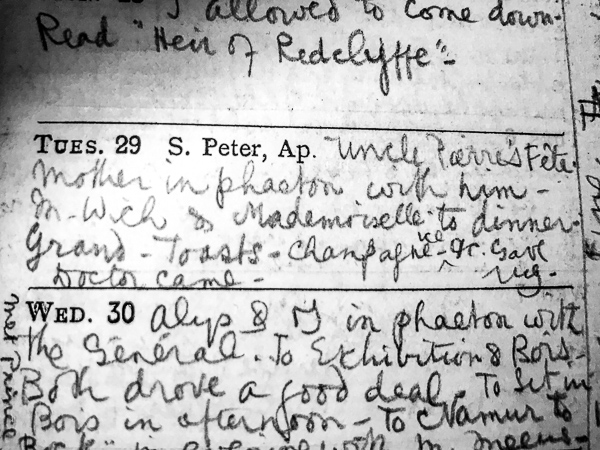 I allowed to come down.
Read "Heir of Redclyffe"-
TUES. 29 S. Peter, Ap. Uncle Pierre's Fête.
Mother in phaeton with him -
M. Wich & Mademoiselle to dinner.
Grand - Toasts - Champagne - ice &c. Gave
Doctor came -
WED. 30 Alys & I in phaeton with
the Général. To Exhibition & Bois.
Both drove a good deal. To sit in
Bois in afternoon - To Namur to
in evening with M. Meeus-
Met Prince